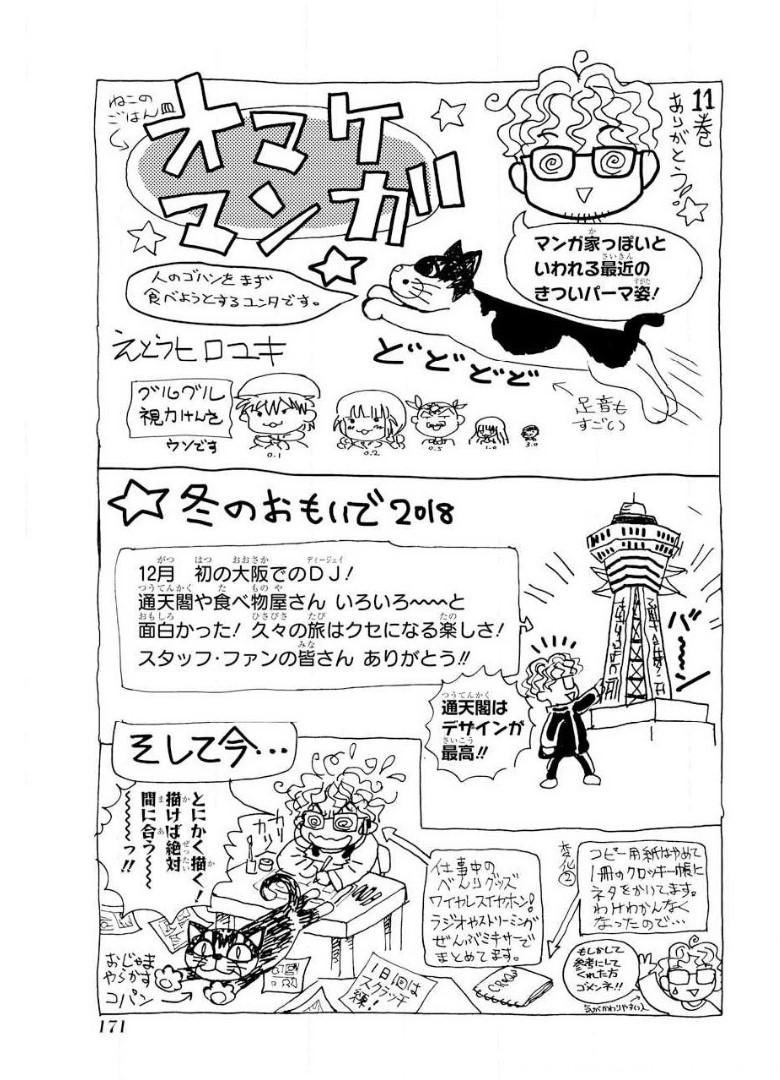 11巻
ありがとう!
オマケ
マンガ
ねこの
ごはん皿
マンガ家っぽいと
いわれる最近の
きついパーマ姿!
人のゴハンをまず
食べようとするユンタです。
えとうヒロユキ
どどどど
足音も
すごい
グルグル
視力けんさ
ウソです
0.1
0.2
0.5
1.0
3.0
☆冬のおもいで2018
12月 初の大阪でのDJ!
通天閣や食べ物屋さん いろいろ〜〜〜と
面白かった! 久々の旅はクセになる楽しさ!
スタッフ・ファンの皆さん ありがとう!!
バーーン
通天閣は
デザインが
最高!!
そして今…
とにかく描く!
描けば絶対
間に合う〜
〜〜〜〜っ!!
ガリガリ
仕事中の
べんりグッズ
ワイヤレスイヤホン!
ラジオやストリーミンが
ぜんぶミキサーで
まとめてます。
変化②
コピー用紙はやめて
1冊のクロッキー帳に
ネタをかいてます。
わけわかんなく
なったので…
もしかして
参考にして
くれた方
ゴメンネ!!
気がかわりやすい人
おじゃま
やらかす
コパン
1日1回は
スクラッチ
練!
171